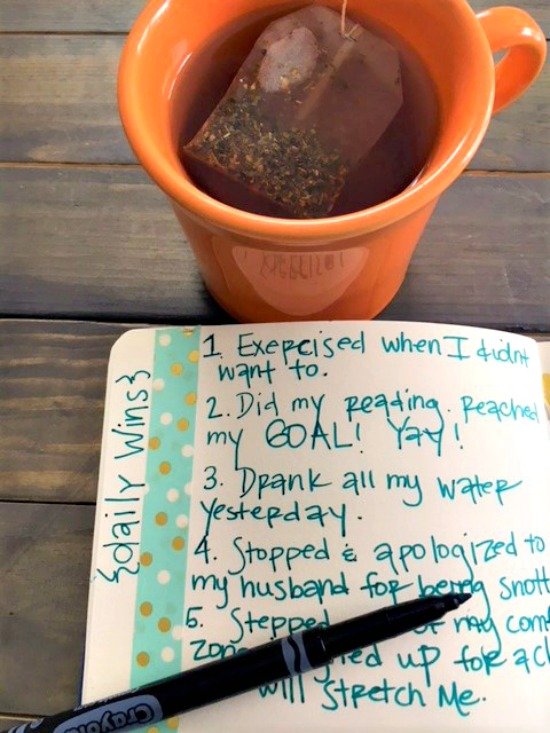 {daily wins}
1. Exercised when I didnt
want to.
2. Did my reading. Reached
my GOAL! Yay!
3. Drank all my water
yesterday.
4. Stopped & apologized to
my husband for being
5. Stepped my
up for a
will stretch Me.
Crayola